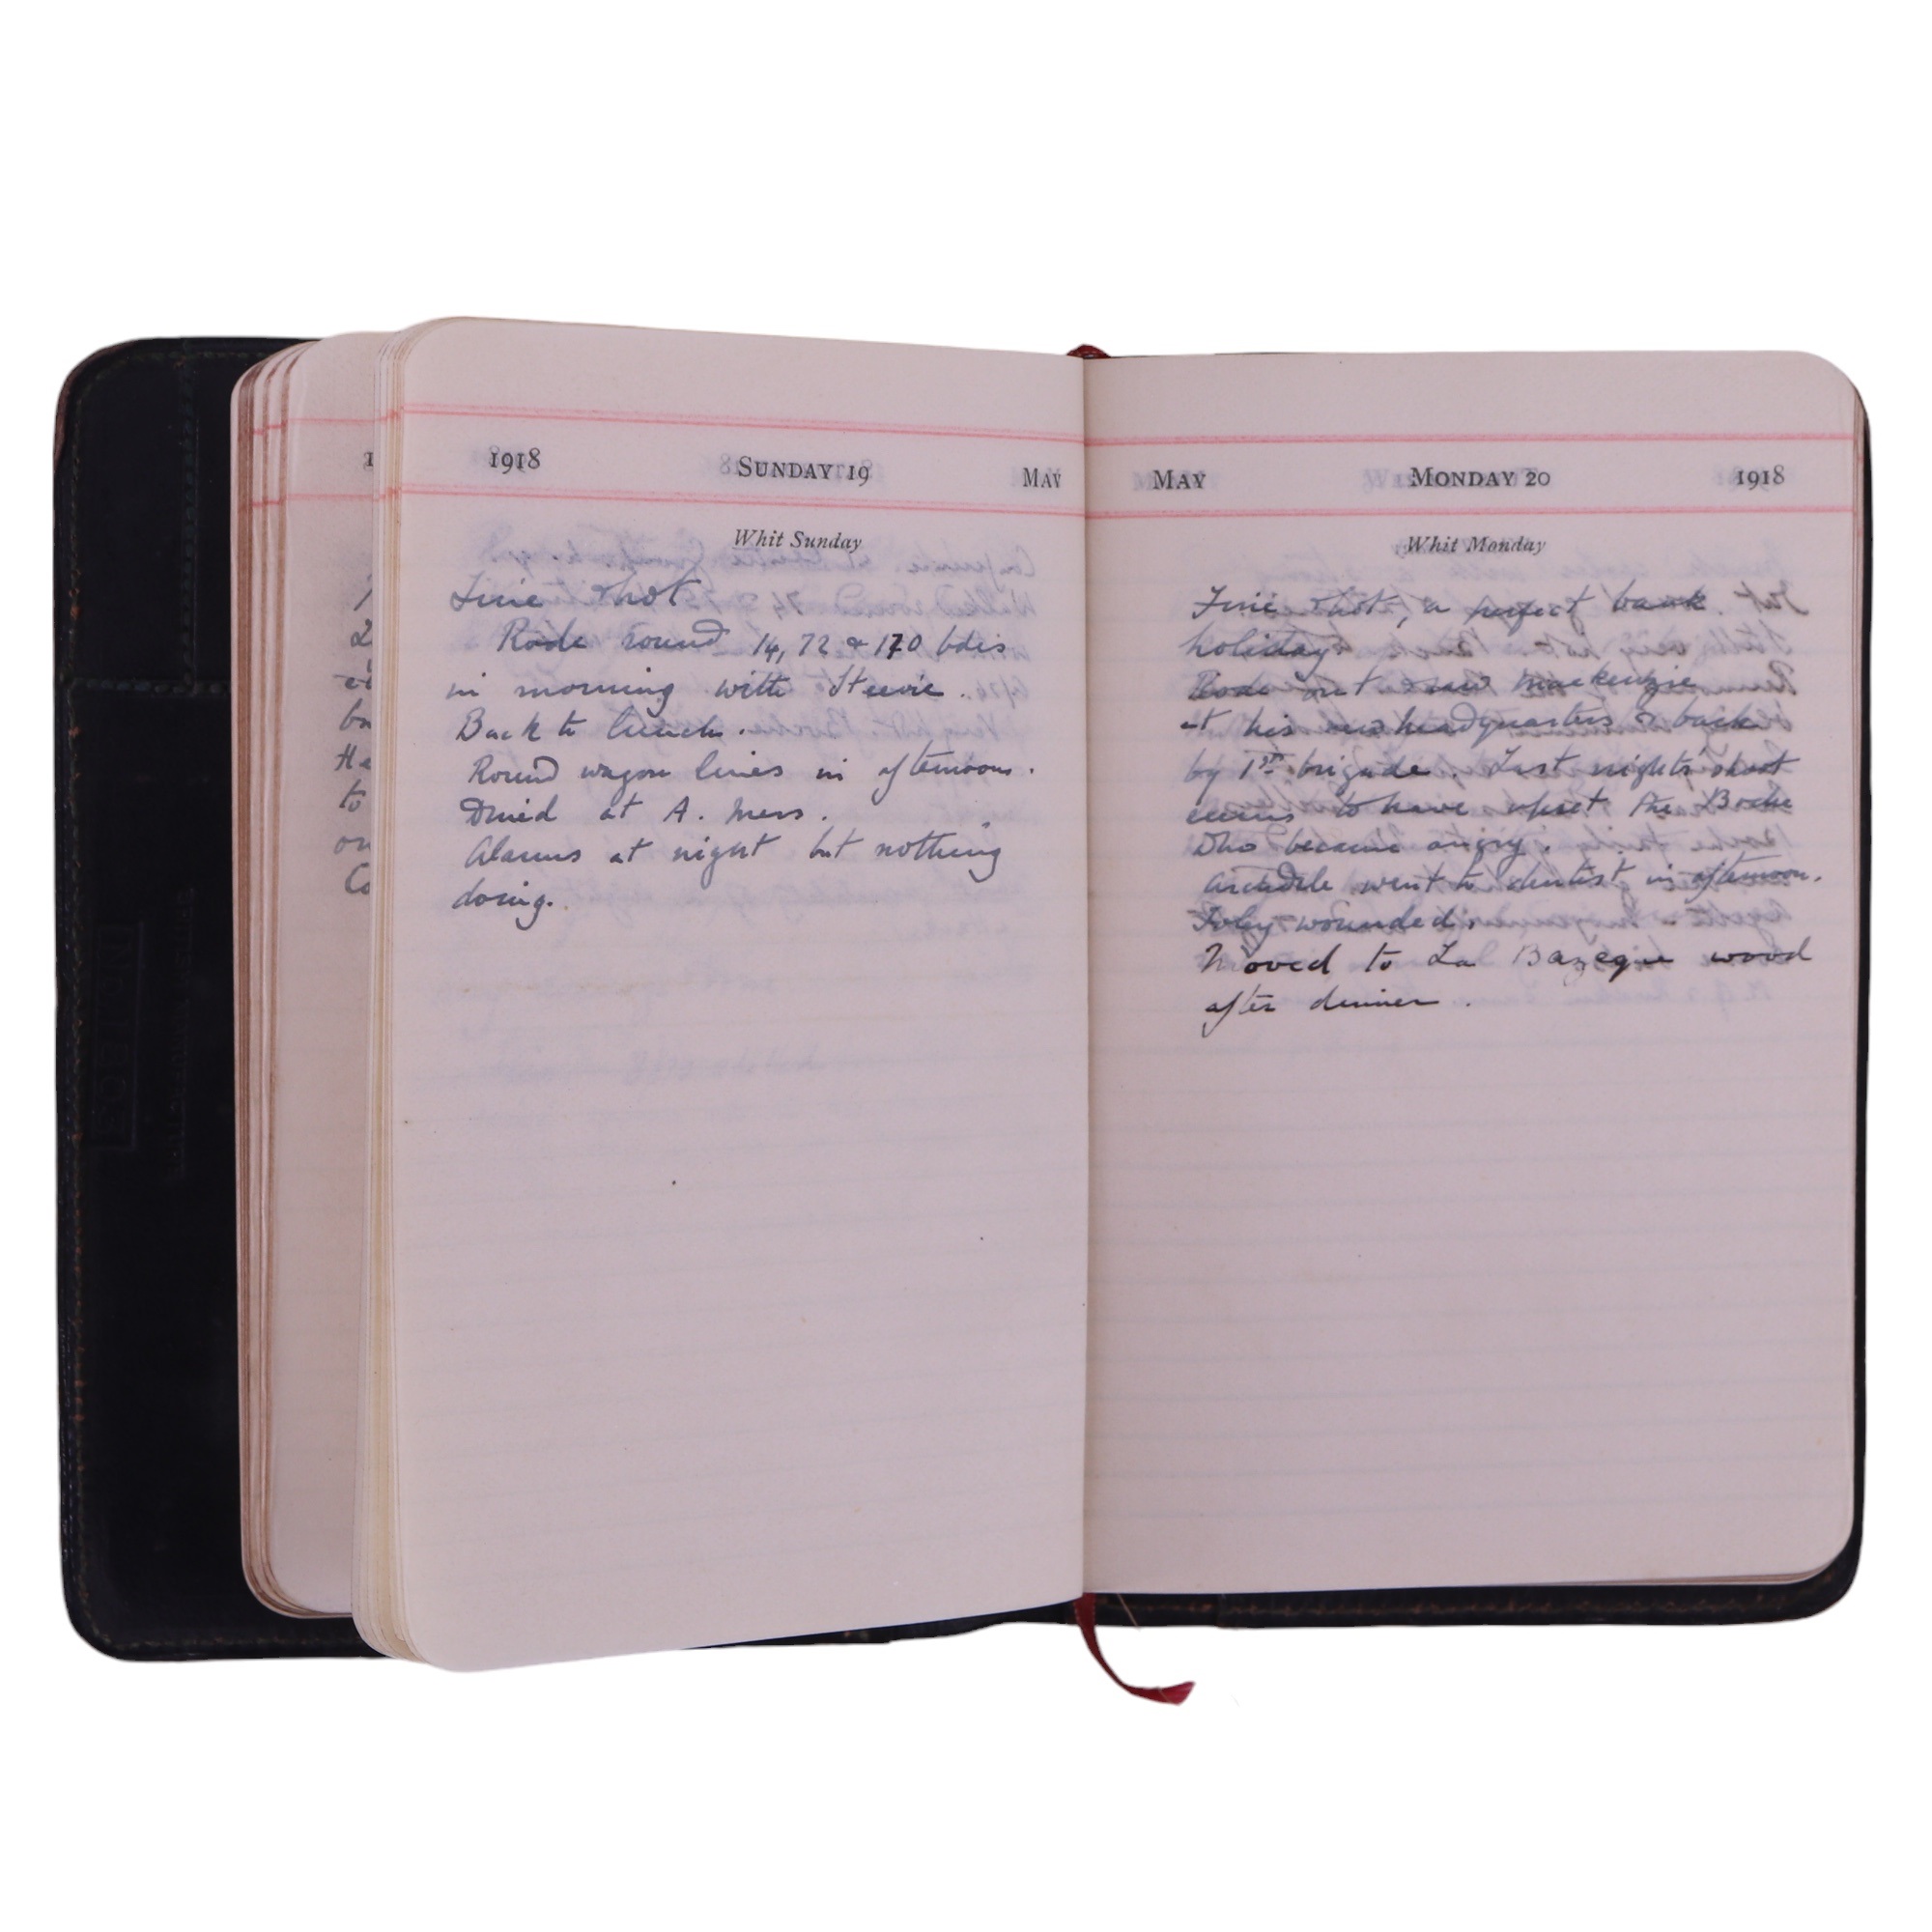 1918 SUNDAY 19 MAY
Whit Sunday
Fine & hot
Rode round 14, 72 & 170 bdes
in morning with Steevie.
Back to lunch.
Round wagon lines in afternoon.
Dined at A. Mess.
Alarms at night but nothing
doing.
MAY MONDAY 20 1918
Whit Monday
Fine & hot, a perfect bank
holiday.
Rode out & saw Mackenzie
at his new headquarters & back
by 1st brigade. Last night's shoot
seems to have upset the Boche
who became angry.
went to dentist in afternoon.
wounded.
Moved to La Bazeque wood
after dinner.